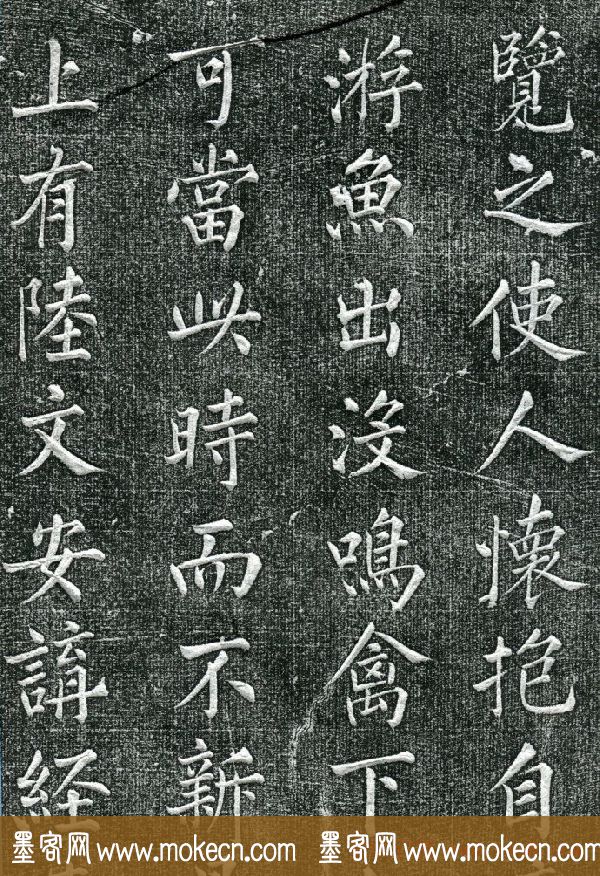 覽之使人懷抱自
游魚出沒鳴禽下
可當此時而不新
上有陸文安講經
墨客网 www.mokecn.com 墨客网 www.mokecn.com